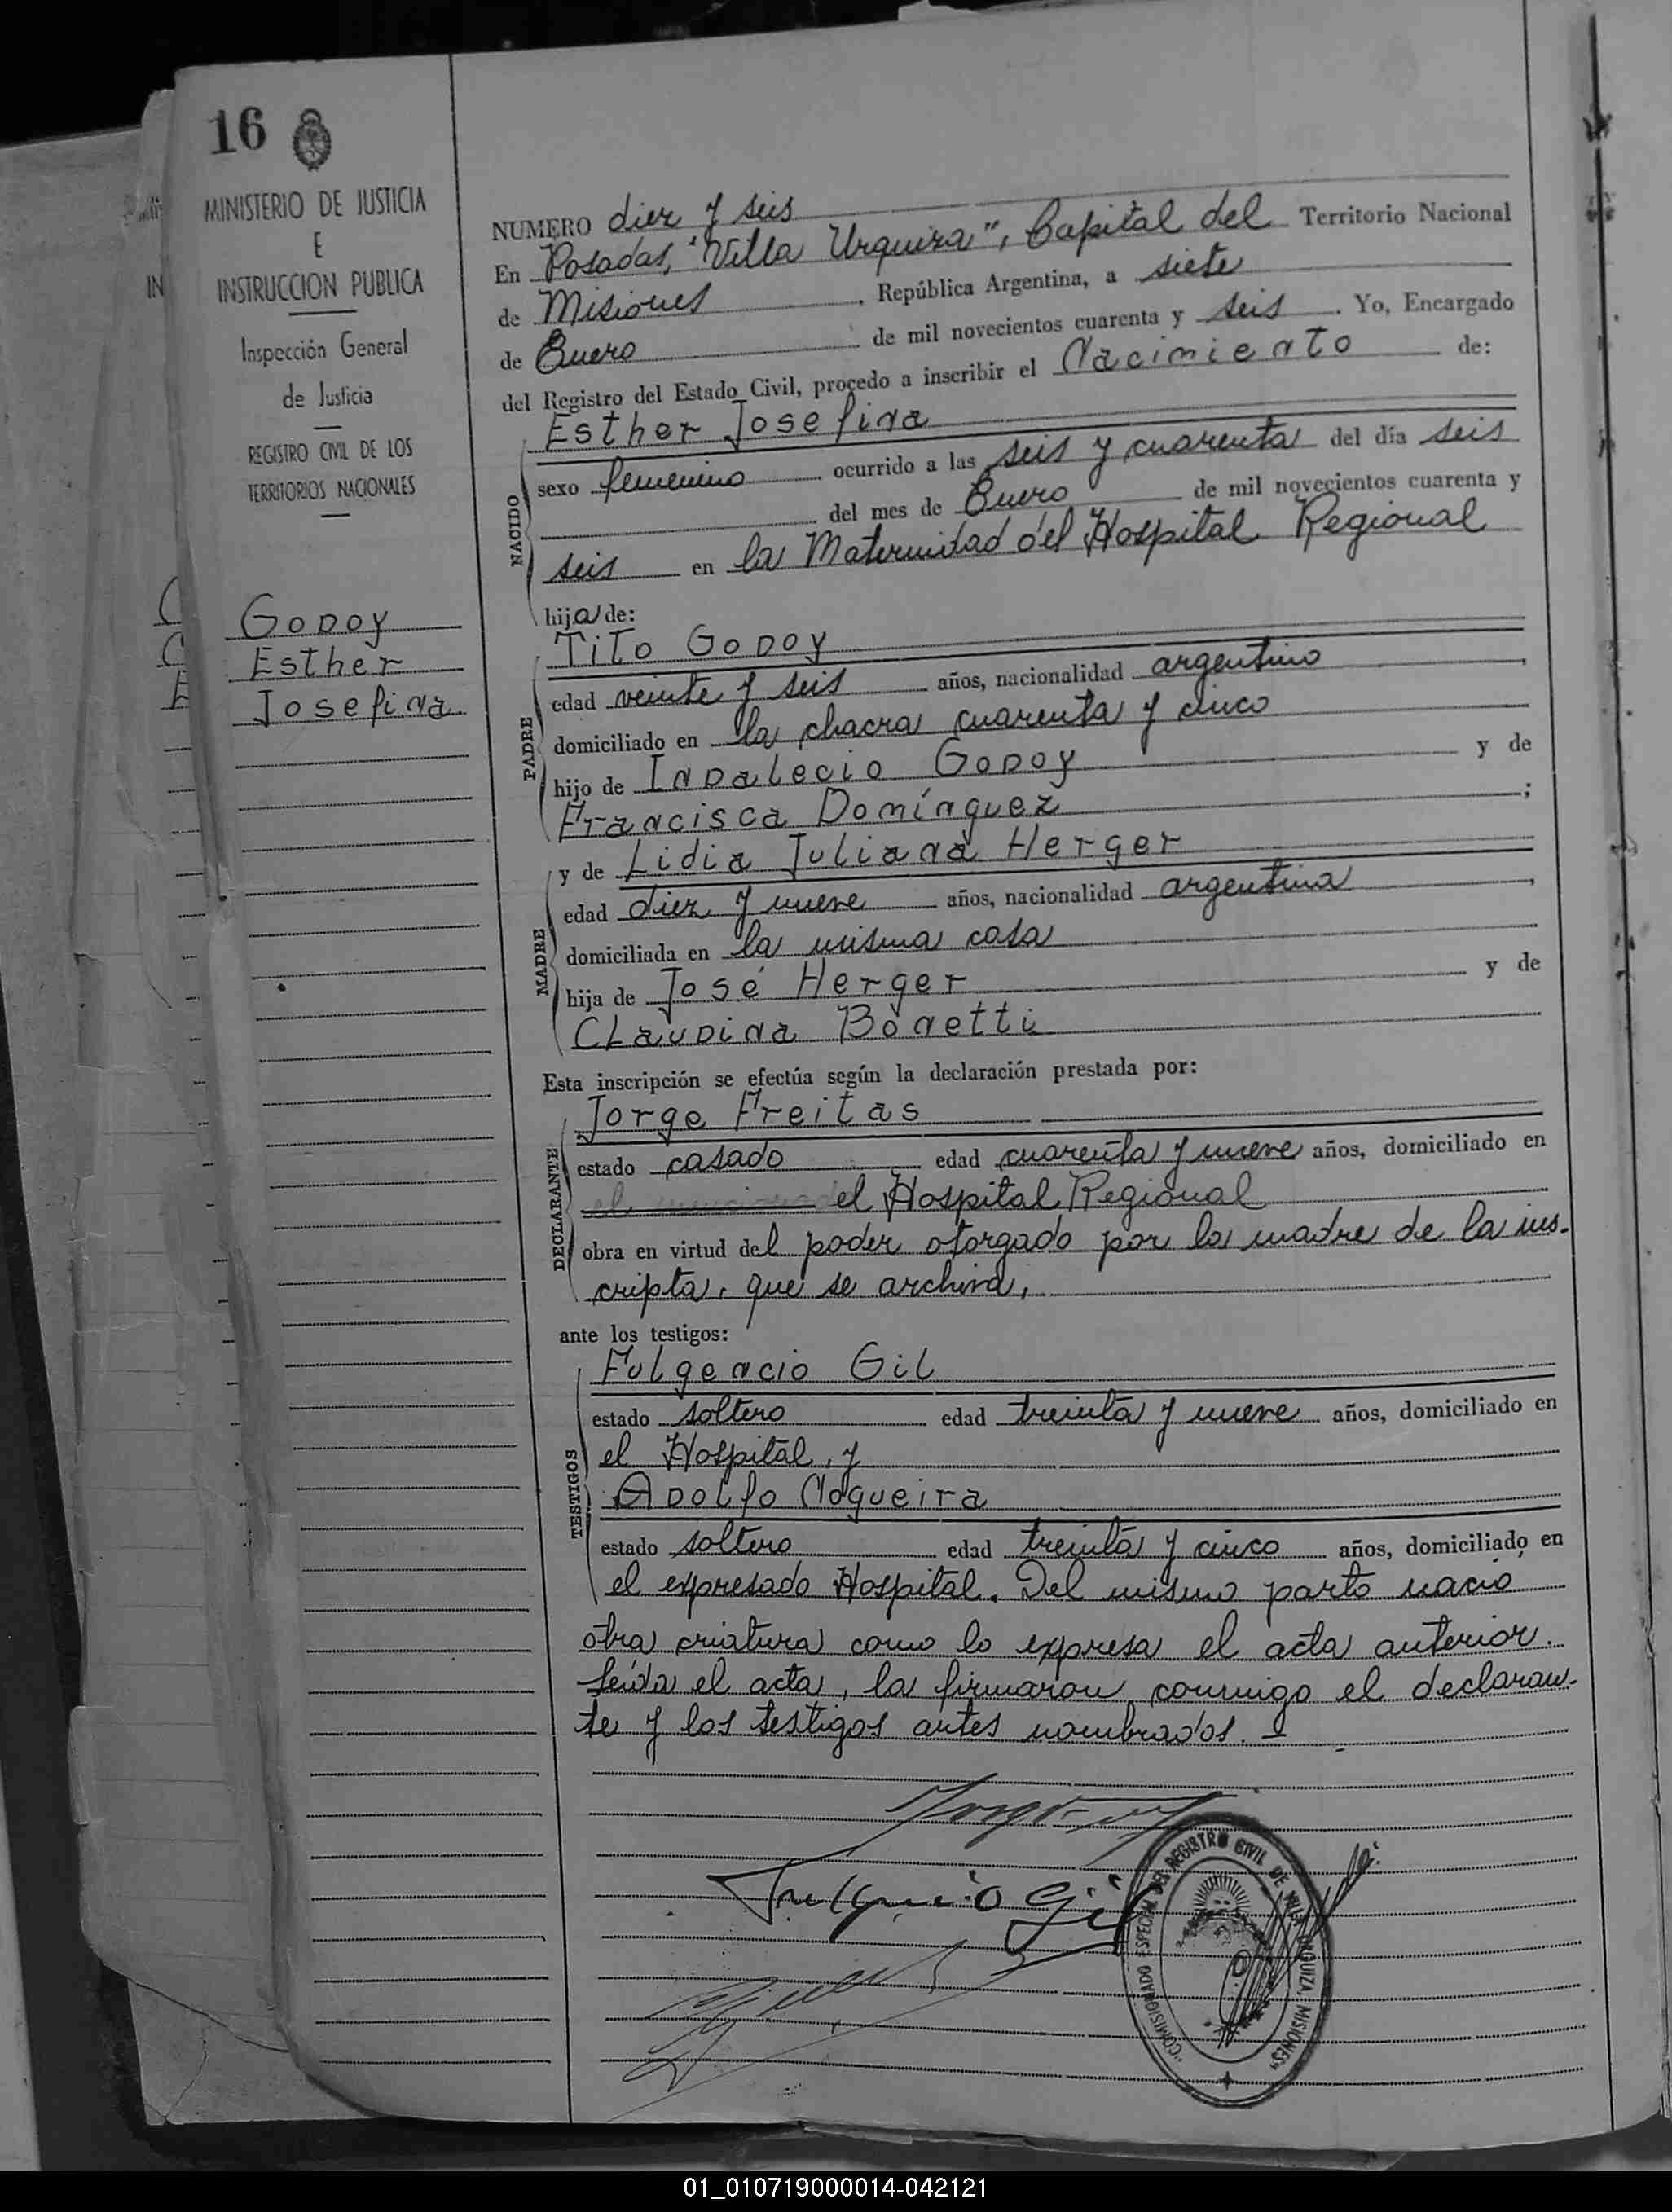 16
MINISTERIO DE JUSTICIA
E
INSTRUCCION PUBLICA
Inspección General
de Justicia
REGISTRO CIVIL DE LOS
TERRITORIOS NACIONALES
Godoy
Esther
Josefina
NUMERO diez y seis
En Posadas, "Villa Urquiza", Capital del Territorio Nacional
de Misiones, República Argentina, a siete
de Enero de mil novecientos cuarenta y seis. Yo, Encargado
del Registro del Estado Civil, procedo a inscribir el Nacimiento de:
NACIDO
Esther Josefina
sexo femenino ocurrido a las seis y cuarenta del día seis
del mes de Enero de mil novecientos cuarenta y
seis en la Maternidad del Hospital Regional
hija de:
PADRE
Tito Godoy
edad veinte y seis años, nacionalidad argentino,
domiciliado en la chacra cuarenta y cinco
hijo de Indalecio Godoy y de
Francisca Domínguez;
MADRE
y de Lidia Juliana Herger
edad diez y nueve años, nacionalidad argentina,
domiciliada en la misma casa
hija de José Herger y de
Claudina Bonetti
Esta inscripción se efectúa según la declaración prestada por:
DECLARANTE
Jorge Freitas
estado casado edad cuarenta y nueve años, domiciliado en
el Hospital Regional
obra en virtud del poder otorgado por la madre de la ins-
cripta, que se archiva,
ante los testigos:
TESTIGOS
Fulgencio Gil
estado soltero edad treinta y nueve años, domiciliado en
el Hospital, y
Adolfo Nogueira
estado soltero edad treinta y cinco años, domiciliado en
el expresado Hospital. Del mismo parto nació
otra criatura como lo expresa el acta anterior.
Leída el acta, la firmaron conmigo el declaran-
te y los testigos antes nombrados. -
Fulgencio Gil
"COMISIONADO ESPECIAL DEL REGISTRO CIVIL DE VILLA URQUIZA, MISIONES"
01_010719000014-042121